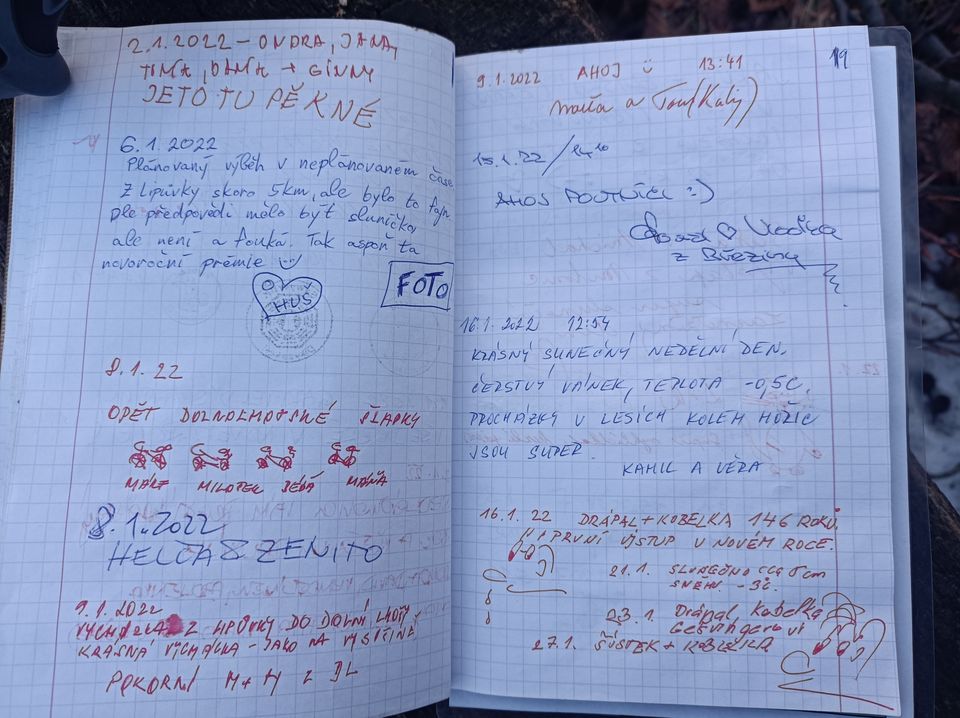 2.1.2022 – ONDRA, JANA,
TIMA, DANA + GINNY
JE TO TU PĚKNÉ
6.1.2022
Plánovaný výběh v neplánovaném čase
z Lipůvky skoro 5km, ale bylo to fajn.
Dle předpovědi mělo být sluníčko,
ale není a fouká. Tak aspoň ta
novoroční prémie
HUŠ
FOTO
8.1.22
OPĚT DOLNOLHOTSKÉ ŠLAPKY
MÁRT MILOTEK BÉĎA MÁŇA
8.1.2022
HELČA & ZENITO
9.1.2022
VYCHÁZKA Z LIPŮVKY DO DOLNÍ LHOTY
KRÁSNÁ VYCHÁZKA – JAKO NA VYSOČINĚ
POKORNÍ M+M z DL
19
9.1.2022 AHOJ 13:41
a Tom (Kalý)
15.1.22 / 14,10
AHOJ POUTNÍCI :)
z Březiny
16.1.2022 12:54
KRÁSNÝ SLUNEČNÝ NEDĚLNÍ DEN.
ČERSTVÝ VÁNEK, TEPLOTA -0,5C,
PROCHÁZKY V LESÍCH KOLEM HOŘIC
JSOU SUPER.
KAMIL A VĚRA
16.1.22 DRÁPAL + KOBELKA 146 ROKŮ,
PRVNÍ VÝSTUP V NOVÉM ROCE.
21.1. SLUNEČNO CCA 5cm
SNĚHU -3°C.
23.1. Drápal Kobelka
Gešvingerovi
27.1. ŠŮSTEK + KOBELKA